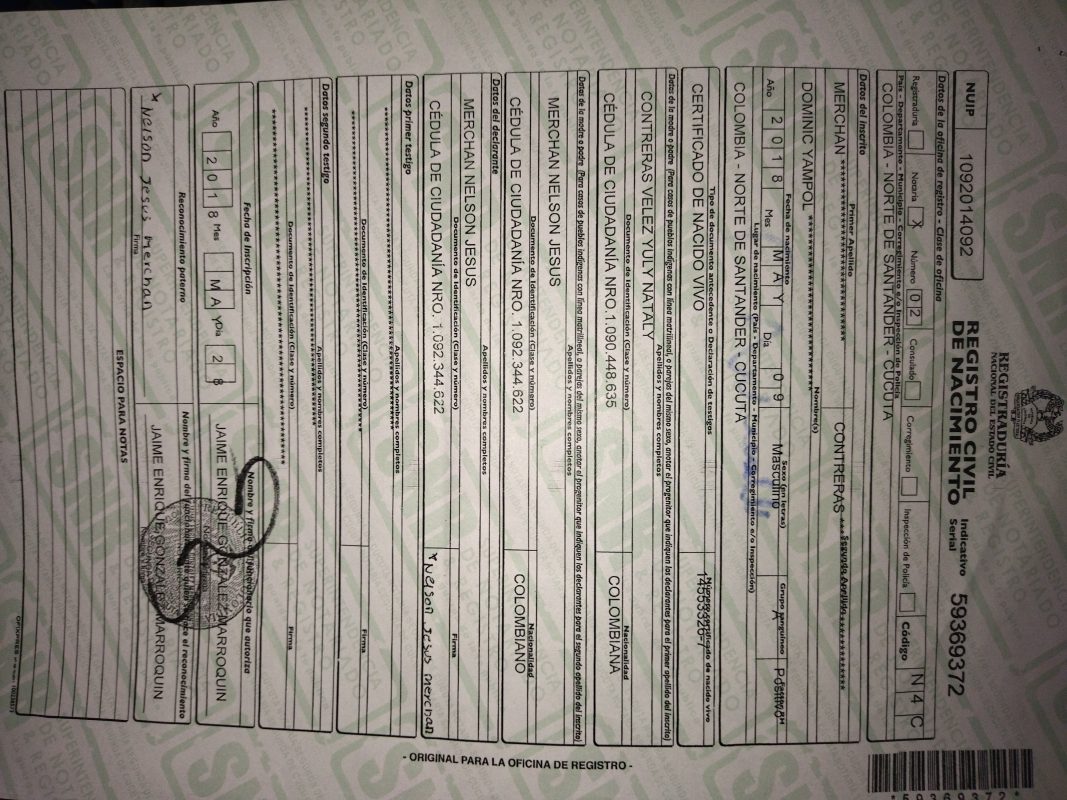 REGISTRADURÍA
NACIONAL DEL ESTADO CIVIL
REGISTRO CIVIL
DE NACIMIENTO
Indicativo
Serial
59369372
NUIP 1092014092
Datos de la oficina de registro - Clase de oficina
Registraduría Notaría X Número 02 Consulado Corregimiento Inspección de Policía Código N 4 C
País - Departamento - Municipio - Corregimiento e/o Inspección de Policía
COLOMBIA - NORTE DE SANTANDER - CUCUTA
Datos del inscrito
Primer Apellido Segundo Apellido
MERCHAN CONTRERAS
Nombre(s)
DOMINIC YAMPOL
Fecha de nacimiento Sexo (en letras) Grupo sanguíneo Factor RH
Año 2018 Mes MAY Día 09 Masculino A Positivo
Lugar de nacimiento (País - Departamento - Municipio - Corregimiento e/o Inspección)
COLOMBIA - NORTE DE SANTANDER - CUCUTA
Tipo de documento antecedente o Declaración de testigos Número certificado de nacido vivo
CERTIFICADO DE NACIDO VIVO 14553326-7
Datos de la madre o padre (Para casos de pueblos indígenas con línea matrilineal, o parejas del mismo sexo, anotar el progenitor que indiquen los declarantes para el primer apellido del inscrito)
Apellidos y nombres completos
CONTRERAS VELEZ YULY NATALY
Documento de Identificación (Clase y número) Nacionalidad
CÉDULA DE CIUDADANÍA NRO. 1.090.448.635 COLOMBIANA
Datos de la madre o padre (Para casos de pueblos indígenas con línea matrilineal, o parejas del mismo sexo, anotar el progenitor que indiquen los declarantes para el segundo apellido del inscrito)
Apellidos y nombres completos
MERCHAN NELSON JESUS
Documento de Identificación (Clase y número) Nacionalidad
CÉDULA DE CIUDADANÍA NRO. 1.092.344.622 COLOMBIANO
Datos del declarante
Apellidos y nombres completos
MERCHAN NELSON JESUS
Documento de Identificación (Clase y número) Firma
CÉDULA DE CIUDADANÍA NRO. 1.092.344.622 Nelson Jesus merchan
Datos primer testigo
Apellidos y nombres completos
Documento de Identificación (Clase y número) Firma
Datos segundo testigo
Apellidos y nombres completos
Documento de Identificación (Clase y número) Firma
Fecha de Inscripción Nombre y firma del funcionario que autoriza
Año 2018 Mes MAY Día 28 JAIME ENRIQUE GONZALEZ MARROQUIN
Reconocimiento paterno Nombre y firma del funcionario ante quien se hace el reconocimiento
Nelson Jesus merchan JAIME ENRIQUE GONZALEZ MARROQUIN
Firma
ESPACIO PARA NOTAS
- ORIGINAL PARA LA OFICINA DE REGISTRO -
*59369372*